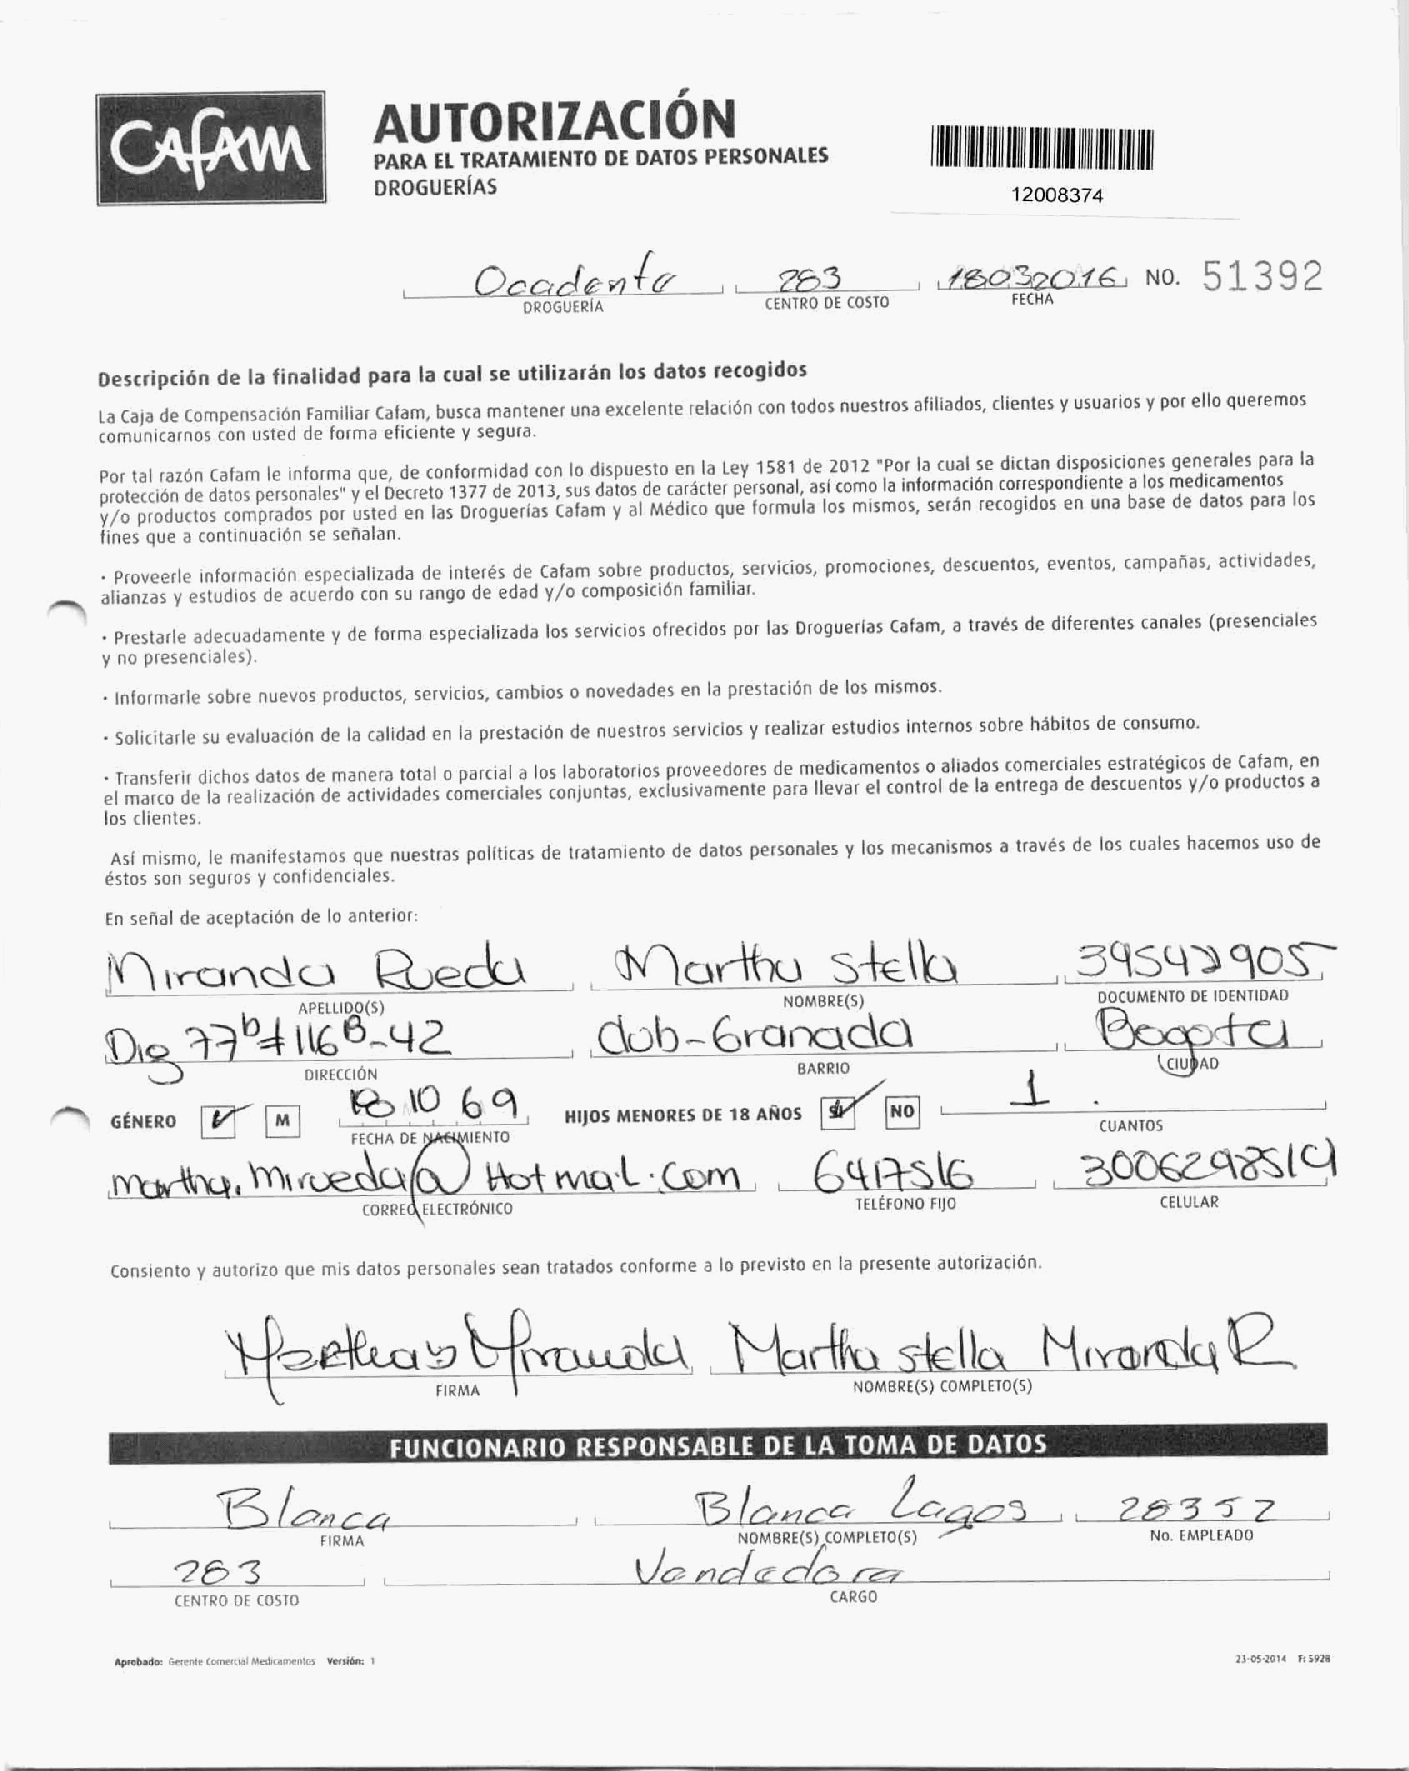 CAFAM
AUTORIZACIÓN
PARA EL TRATAMIENTO DE DATOS PERSONALES
DROGUERÍAS
12008374
Occidente 283 18032016 NO. 51392
DROGUERÍA CENTRO DE COSTO FECHA
Descripción de la finalidad para la cual se utilizarán los datos recogidos
La Caja de Compensación Familiar Cafam, busca mantener una excelente relación con todos nuestros afiliados, clientes y usuarios y por ello queremos
comunicarnos con usted de forma eficiente y segura.
Por tal razón Cafam le informa que, de conformidad con lo dispuesto en la Ley 1581 de 2012 "Por la cual se dictan disposiciones generales para la
protección de datos personales" y el Decreto 1377 de 2013, sus datos de carácter personal, así como la información correspondiente a los medicamentos
y/o productos comprados por usted en las Droguerías Cafam y al Médico que formula los mismos, serán recogidos en una base de datos para los
fines que a continuación se señalan.
· Proveerle información especializada de interés de Cafam sobre productos, servicios, promociones, descuentos, eventos, campañas, actividades,
alianzas y estudios de acuerdo con su rango de edad y/o composición familiar.
· Prestarle adecuadamente y de forma especializada los servicios ofrecidos por las Droguerías Cafam, a través de diferentes canales (presenciales
y no presenciales).
· Informarle sobre nuevos productos, servicios, cambios o novedades en la prestación de los mismos.
· Solicitarle su evaluación de la calidad en la prestación de nuestros servicios y realizar estudios internos sobre hábitos de consumo.
· Transferir dichos datos de manera total o parcial a los laboratorios proveedores de medicamentos o aliados comerciales estratégicos de Cafam, en
el marco de la realización de actividades comerciales conjuntas, exclusivamente para llevar el control de la entrega de descuentos y/o productos a
los clientes.
Así mismo, le manifestamos que nuestras políticas de tratamiento de datos personales y los mecanismos a través de los cuales hacemos uso de
éstos son seguros y confidenciales.
En señal de aceptación de lo anterior:
Miranda Rueda Martha Stella 39542905
APELLIDO(S) NOMBRE(S) DOCUMENTO DE IDENTIDAD
Dig 77b # 116B-42 dub-Granada Bogota
DIRECCIÓN BARRIO CIUDAD
GÉNERO M 10 69 HIJOS MENORES DE 18 AÑOS SI NO 1
FECHA DE NACIMIENTO CUANTOS
martha.mirueda@Hotmail.com 6417516 3006298514
CORREO ELECTRÓNICO TELÉFONO FIJO CELULAR
Consiento y autorizo que mis datos personales sean tratados conforme a lo previsto en la presente autorización.
Marthas Miranda Martha stella Miranda R
FIRMA NOMBRE(S) COMPLETO(S)
FUNCIONARIO RESPONSABLE DE LA TOMA DE DATOS
Blanca Blanca Lagos 28352
FIRMA NOMBRE(S) COMPLETO(S) No. EMPLEADO
283 Vendedora
CENTRO DE COSTO CARGO
Aprobado: Gerente Comercial Medicamentos Versión: 1 23-05-2014 F: 5928